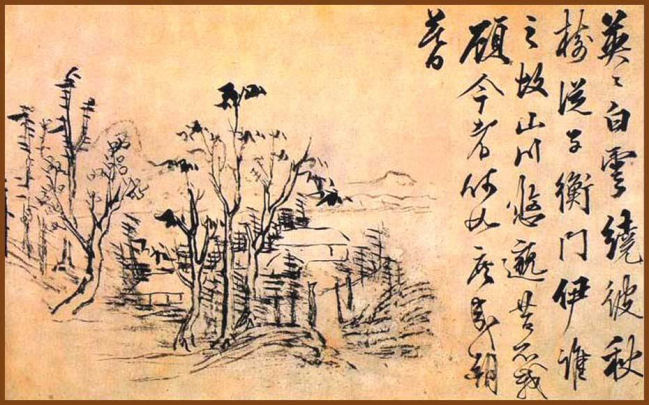 英々白雲繞彼秋
樹從子衡門伊誰
之故山川悠邈昔不我
顧今者何如庶或朝
暮